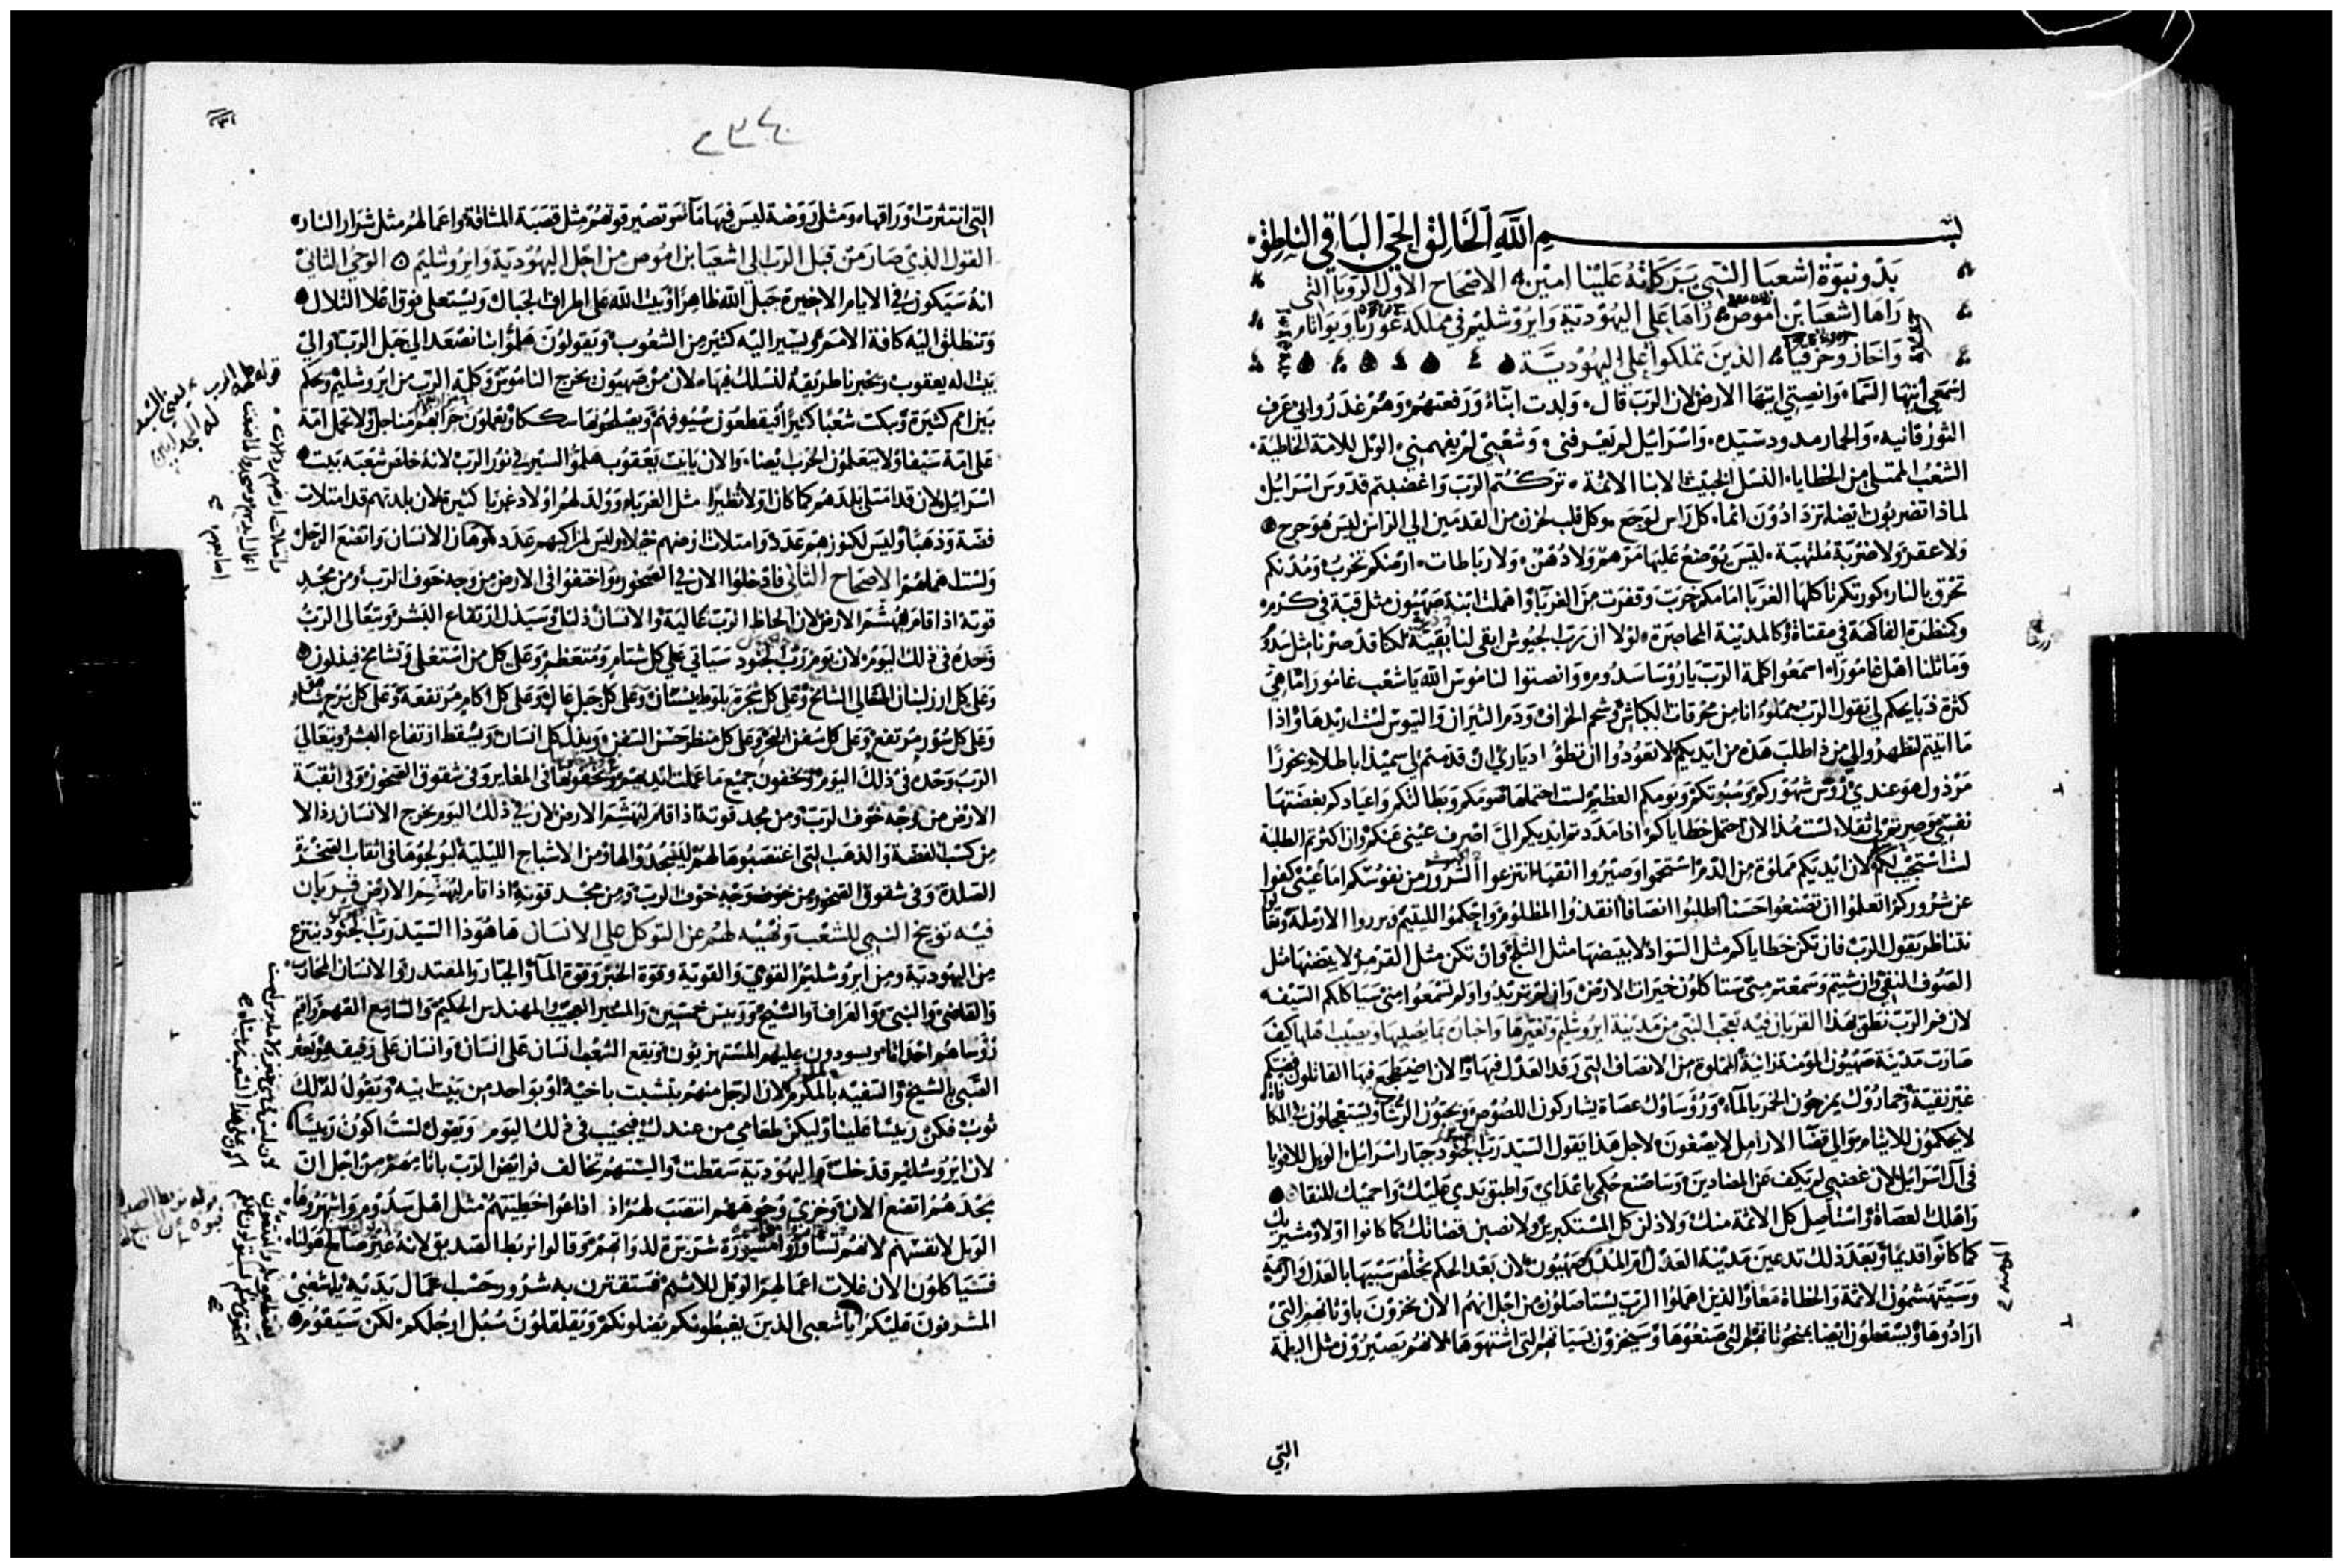 بسم الله الخالق الحي الباقي الناطق
بدو نبوة اشعيا النبي بركاته علينا امين الاصحاح الاول الرويا التي
راها اشعيا بن اموص راها على اليهودية وايروشليم في مملكة عوزيا ويواثام
واحاز وحزقيا الذين تملكوا على اليهودية
اسمعي ايتها السماء وانصتي ايتها الارض لان الرب قال ولدت ابناء ورفعتهم وهم غدروا بي عرف
الثور قانيه والحمار مدود سيده واسرائيل لم يعرفني وشعبي لم يفهمني الويل للامة الخاطية
الشعب الممتلي من الخطايا النسل الخبيث الابنا الاثمة تركتم الرب واغضبتم قدوس اسرائيل
لماذا تضربون ايضا تزدادون اثما كل راس لوجع وكل قلب لحزن من القدمين الي الراس ليس هو جرح
ولا عقر ولا ضربة ملتهبة ليس يوضع عليها مرهم ولا دهن ولا رباطات ارضكم تخرب ومدنكم
تحرق بالنار كورتكم تاكلها الغربا امامكم خربت وقفرت من الغربا واهملت ابنة صهيون مثل قبة في كرم
وكمنظرة الفاكهة في مقتاة وكالمدينة المحاصرة لولا ان رب الجيوش ابقى لنا بقية لكنا قد صرنا مثل سدوم
وماثلنا اهل غامورا اسمعوا كلمة الرب يا روسا سدوم وانصتوا لناموس الله يا شعب غامورا ما هي
كثرة ذبايحكم لي يقول الرب مملوء انا من محرقات الكباش وشحم الخراف ودم الثيران والتيوس لست اريدها واذا
ما اتيتم لتظهروا لي من ذا طلب هذه من ايديكم لا تعودوا ان تطؤا دياري ان قدمتم لي سميذا باطلا وبخورا
مرذول هو عندي روس شهوركم وسبوتكم ويومكم العظيم لست احتملها صومكم وبطالتكم واعيادكم بغضتها
نفسي وصرتم لي ثقلا لست منذ الان احتمل خطاياكم اذا مددتم ايديكم الي اصرف عيني عنكم وان اكثرتم الطلبة
لست استجيب لكم لان ايديكم مملوة من الدم استحموا وصيروا انقيا انتزعوا الشرور من نفوسكم امام عيني كفوا
عن شروركم تعلموا ان تصنعوا حسنا اطلبوا انصافا انقذوا المظلوم واحكموا لليتيم وبرروا الارملة وتعالوا
نتناظر يقول الرب فان تكن خطاياكم مثل السواد لابيضها مثل الثلج وان تكن مثل القرمز لابيضنها مثل
الصوف النقي وان شيتم وسمعتم مني ستاكلون خيرات الارض وان لم تريدوا ولم تسمعوا مني سياكلكم السيف
لان فم الرب نطق بهذا القربان فيه تعجب النبي من مدينة ايروشليم وتغيرها واخبار بما يصيبها ويصيب اهلها كيف
صارت مدينة صهيون المومنة زانية المملوة من الانصاف التي رقد العدل فيها والان اضطجع فيها القاتلون فضتكم
غير نقية وخمارك يمزجون الخمر بالماء وروساوك عصاة يشاركون اللصوص ويحبون الرشا ويستعجلون في المكافاة
لا يحكمون للايتام والى قضا الارامل لا يصغون لاجل هذا يقول السيد رب الجنود جبار اسرائيل الويل للاقويا
في ال اسرائيل لان غضبي لم يكف عن المضادين وساصنع حكمي باعداي واطبق يدي عليك واحميك للنقا
واهلك العصاة واستاصل كل الاثمة منك ولاذلن كل المستكبرين ولاصيرن قضاتك كما كانوا اولا ومشيريك
كما كانوا قديما وبعد ذلك تدعين مدينة العدل ام المدن صهيون لان بعد الحكم يخلص سبيها بالعدل والرحمة
وسيتهشمون الاثمة والخطاة معا والذين اهملوا الرب يستاصلون من اجل انهم الان يخزون باوثانهم التي
ارادوها ويسقطون ايضا بمنحوتاتهم التي صنعوها وسيخزون ببساتينهم التي اشتهوها لانهم يصيرون مثل البطمة
التي
٢٣٤
التي انتثرت اوراقها ومثل روضة ليس فيها ماء وتصير قوتهم مثل قصبة المشاقة واعمالهم مثل شرار النار
القول الذي صار من قبل الرب الى اشعيا بن اموص من اجل اليهودية وايروشليم الوحي الثاني
انه سيكون في الايام الاخيرة جبل الله ظاهرا وبيت الله على اطراف الجبال ويستعلي فوق اعلا التلال
وتنطلق اليه كافة الامم ويسير اليه كثير من الشعوب ويقولون هلموا بنا نصعد الي جبل الرب والى
بيت اله يعقوب ويخبرنا طريقه لنسلك فيها لان من صهيون يخرج الناموس وكلمة الرب من ايروشليم ويحكم
بين امم كثيرة ويبكت شعبا كثيرا فيقطعون سيوفهم ويصلحونها سككا ويعملون حرابهم مناجل ولا تحمل امة
على امة سيفا ولا يتعلمون الحرب ايضا والان يا بيت يعقوب هلموا لنسير في نور الرب لانه خلص شعبه بيت
اسرائيل لان قد امتلى بلدهم كما كان اولا تطيرا مثل الغربا وولد لهم اولاد غربا كثيرة لان بلدتهم قد امتلات
فضة وذهبا وليس لكنوزهم عدد وامتلات ارضهم خيلا وليس لمراكبهم عدد وهان الانسان واتضع الرجل
ولست اهملهم الاصحاح الثاني فادخلوا الان في الصخور واختفوا في الارض من وجه خوف الرب ومن مجد
قوته اذا قام ليهشم الارض لان الحاظ الرب عالية والانسان ذليل وسيذل ارتفاع البشر ويتعالى الرب
وحده في ذلك اليوم لان يوم رب الجنود سياتي على كل شتام ومتعظم وعلى كل من استعلى وتشامخ فيذلون
وعلى كل ارز لبنان المتعالي الشامخ وعلى كل شجرة بلوط بيسان وعلى كل جبل عال وعلى كل اكام مرتفعة وعلى كل برج شامخ
وعلى كل سور مرتفع وعلى كل سفن البحر وعلى كل منظر حسن السفن ويذل كل انسان ويسقط ارتفاع البشر ويتعالى
الرب وحده في ذلك اليوم ويخفون جميع ما عملت ايديهم ويخفونها في المغاير وفي شقوق الصخور وفي اثقبة
الارض من وجه خوف الرب ومن مجد قوته اذا قام ليهشم الارض لان في ذلك اليوم يخرج الانسان رذالا
من كسب الفضة والذهب التي اغتصبوها لهم ليسجدوا لها ومن الاشباح الليلية ليولجوها في اثقاب الصخرة
الصلدة وفي شقوق الصخور من خوف وجه خوف الرب ومن مجد قوته اذا قام ليهشم الارض قربان
فيه توبيخ النبي للشعب وتنبيه لهم عن التوكل على الانسان ها هوذا السيد رب الجنود ينتزع
من اليهودية ومن ايروشليم القوي والقوية وقوة الخبز وقوة الماء والجبار والمقتدر والانسان المحارب
والقاضي والنبي والعراف والشيخ ورييس خمسين والمشير العجيب والمهندس الحكيم والسامع الفهم واقيم
روساهم احداثا ويسودون عليهم المستهزيون ويقع الشعب انسان على انسان وانسان على رفيقه ويعثر
الصبي بالشيخ والسفيه بالمكرم لان الرجل منهم يتشبت باخيه او بواحد من بيت ابيه ويقول له لك
ثوب فكن رييسا علينا وليكن طعامي من عندك فيجيب في ذلك اليوم ويقول لست اكون رييسا
لان ايروشليم قد خلت واليهودية سقطت والسنتهم تخالف فرايض الرب باثامهم من اجل ان
مجدهم اتضع الان وخزي وجوههم انتصب لهم اذ اذاعوا خطيتهم مثل اهل سدوم واشهروها
الويل لانفسهم لانهم تشاوروا مشورة شريرة لذواتهم وقالوا نربط الصديق لانه غير صالح هو لنا
فسياكلون الان غلات اعمالهم الويل للاثيم فستقترن به شرور حسب اعمال يديه يا شعبي
المشرفون عليكم يا شعبي الذين يغبطونكم يضلونكم ويقلقلون سبل ارجلكم لكن سيقوم